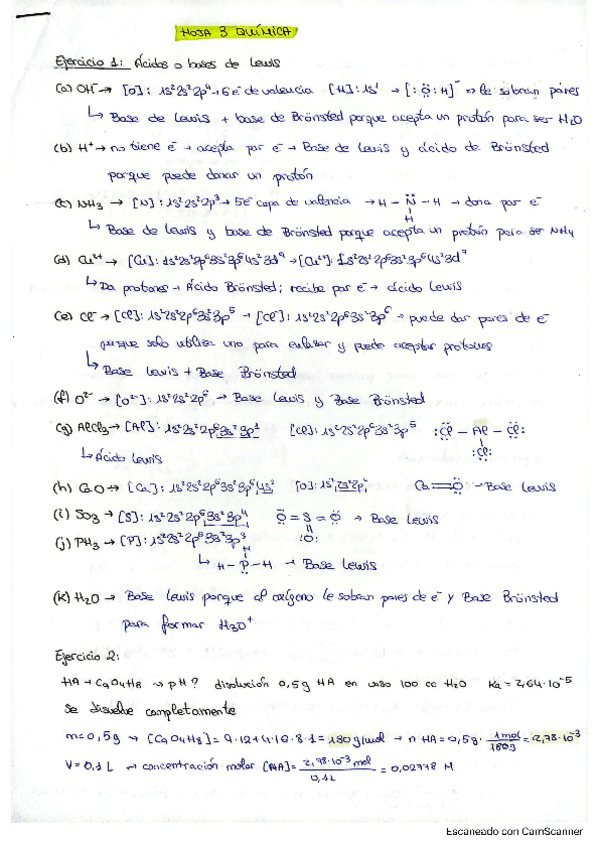 HOJA 3 QUÍMICA
Ejercicio 1: Ácidos o bases de Lewis
(a) OH⁻ → [O]: 1s²2s²2p⁴ → 6 e⁻ de valencia [H]: 1s¹ → [:Ö:H]⁻ → le sobran pares
↳ Base de Lewis + base de Brönsted porque acepta un protón para ser H₂O
(b) H⁺ → no tiene e⁻ → acepta par e⁻ → Base de Lewis y ácido de Brönsted
porque puede donar un protón
(c) NH₃ → [N]: 1s²2s²2p³ → 5e⁻ capa de valencia → H - N̈ - H → dona par e⁻
H
↳ Base de Lewis y base de Brönsted porque acepta un protón para ser NH₄
(d) Cu²⁺ → [Cu]: 1s²2s²2p⁶3s²3p⁶4s²3d⁹ → [Cu²⁺]: 1s²2s²2p⁶3s²3p⁶4s²3d⁷
↳ Da protones → Ácido Brönsted; recibe par e⁻ → ácido Lewis
(e) Cl⁻ → [Cl]: 1s²2s²2p⁶3s²3p⁵ → [Cl⁻]: 1s²2s²2p⁶3s²3p⁶ → puede dar pares de e⁻
porque solo utiliza uno para enlazar y puede aceptar protones
↳ Base Lewis + Base Brönsted
(f) O²⁻ → [O²⁻]: 1s²2s²2p⁶ → Base Lewis y Base Brönsted
(g) AlCl₃ → [Al]: 1s²2s²2p⁶3s²3p¹ [Cl]: 1s²2s²2p⁶3s²3p⁵ :C̈l - Al - C̈l:
:Cl:
↳ Ácido Lewis
(h) CaO → [Ca]: 1s²2s²2p⁶3s²3p⁶4s² [O]: 1s²2s²2p⁴ Ca=Ö → Base Lewis
(i) SO₃ → [S]: 1s²2s²2p⁶3s²3p⁴ Ö = S = Ö → Base Lewis
:O:
(j) PH₃ → [P]: 1s²2s²2p⁶3s²3p³
H
↳ H - P - H → Base Lewis
(k) H₂O → Base Lewis porque al oxígeno le sobran pares de e⁻ y Base Brönsted
para formar H₃O⁺
Ejercicio 2:
HA → C₉O₄H₈ → pH? disolución 0,5g HA en vaso 100 cc H₂O Ka = 2,64·10⁻⁵
Se disuelve completamente
m = 0,5g → [C₉O₄H₈] = 9·12+4·16·8·1 = 180 g/mol → n HA = 0,5g · 1mol/180g = 2,78·10⁻³
V = 0,1 L → concentración molar [HA] = 2,78·10⁻³ mol/0,1L = 0,02778 M
Escaneado con CamScanner